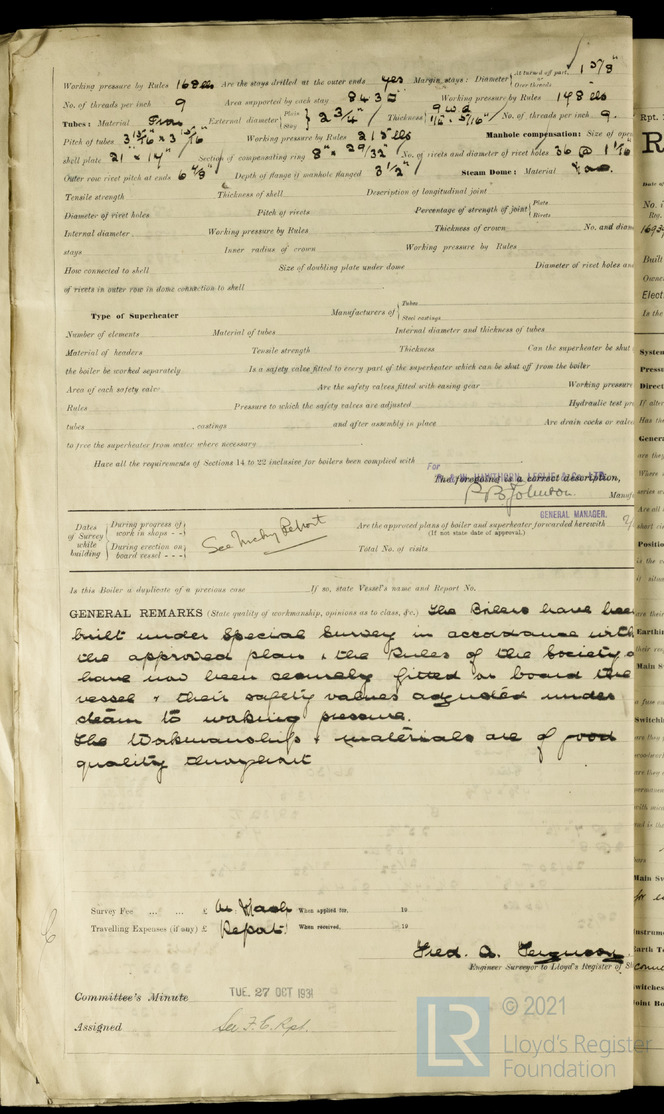 Working pressure by Rules 168 lbs Are the stays drilled at the outer ends yes Margin stays: Diameter { At turned off part, 1 5/8" Over threads
No. of threads per inch 9 Area supported by each stay 843 Working pressure by Rules 198 lbs
Tubes: Material Iron External diameter { Plain Stay } 2 3/4" Thickness { 9 WG 5/16" No. of threads per inch 9.
Pitch of tubes 3 13/16" x 3 13/16" Working pressure by Rules 215 lbs Manhole compensation: Size of open
shell plate 21" x 17" Section of compensating ring 8" x 29/32" No. of rivets and diameter of rivet holes 36 @ 1 1/16"
Outer row rivet pitch at ends 6 7/8" Depth of flange if manhole flanged 3 1/2" Steam Dome: Material
Tensile strength Thickness of shell Description of longitudinal joint
Diameter of rivet holes Pitch of rivets Percentage of strength of joint { Plate Rivets
Internal diameter Working pressure by Rules Thickness of crown No. and diam
stays Inner radius of crown Working pressure by Rules
How connected to shell Size of doubling plate under dome Diameter of rivet holes an
of rivets in outer row in dome connection to shell
Type of Superheater Manufacturers of { Tubes Steel castings
Number of elements Material of tubes Internal diameter and thickness of tubes
Material of headers Tensile strength Thickness Can the superheater be shut
the boiler be worked separately Is a safety valve fitted to every part of the superheater which can be shut off from the boiler
Area of each safety valve Are the safety valves fitted with easing gear Working pressure
Rules Pressure to which the safety valves are adjusted Hydraulic test pre
tubes castings and after assembly in place Are drain cocks or valve
to free the superheater from water where necessary
Have all the requirements of Sections 14 to 22 inclusive for boilers been complied with
For
HAWTHORN LESLIE & CO. LTD.
The foregoing is a correct description,
Manuf
GENERAL MANAGER.
Dates of Survey while building { During progress of work in shops - - } { During erection on board vessel - - - } See Mchy Report
Are the approved plans of boiler and superheater forwarded herewith
(If not state date of approval.)
Total No. of visits
Is this Boiler a duplicate of a previous case If so, state Vessel's name and Report No.
GENERAL REMARKS (State quality of workmanship, opinions as to class, &c.) The Boilers have been
built under Special Survey in accordance with
the approved plan & the Rules of the Society &
have now been securely fitted on board the
vessel & their safety valves adjusted under
steam to working pressure.
The Workmanship & materials are of good
quality throughout
Survey Fee ... ... £ On Mach When applied for, 19
Travelling Expenses (if any) £ Report! When received, 19
Fred. A. Ferguson
Engineer Surveyor to Lloyd's Register of Sh
Committee's Minute TUE. 27 OCT 1931
Assigned See F.E. Rpt.
© 2021
LR
Lloyd's Register
Foundation
Rpt.
R
Date of
No. i
Reg.
Built
Owne
Elect
Is the
System
Pressu
Direct
If alter
Has th
Genera
are they
Where
Are all
short ci
Positio
is the c
Earthin
Main S
Switchin
Main Sw
Instrum
Earth T
witches
oint Bo